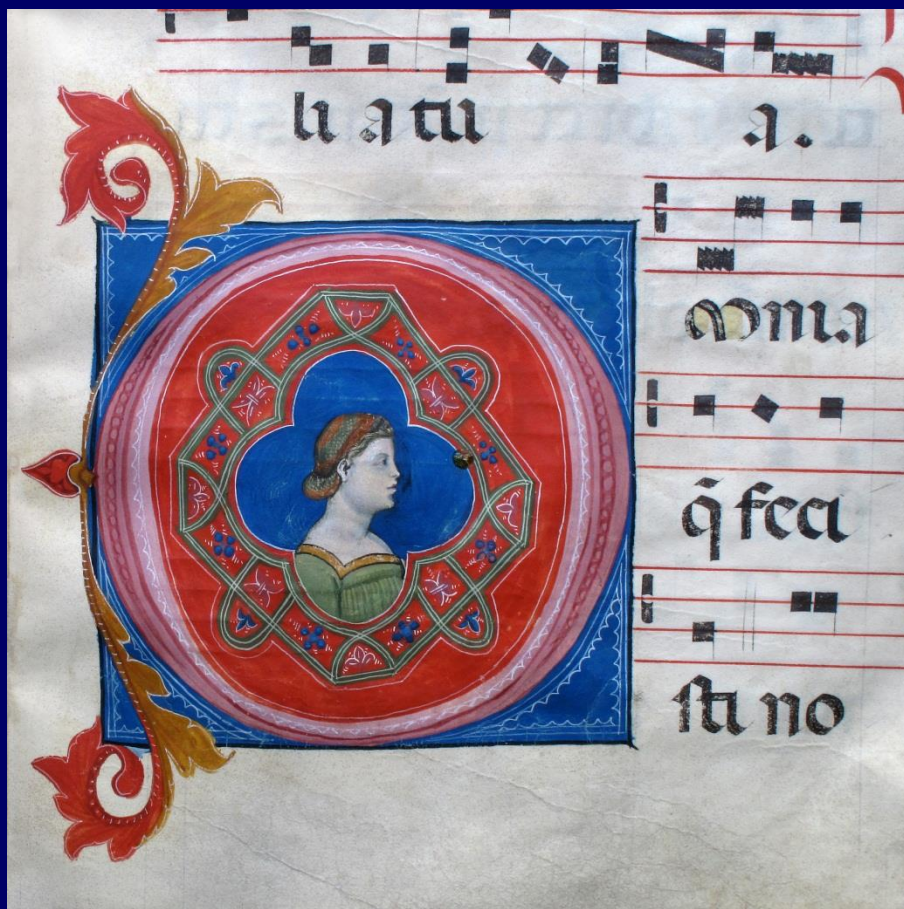 li a tu a.
OMnia
q̃ feci
sti no